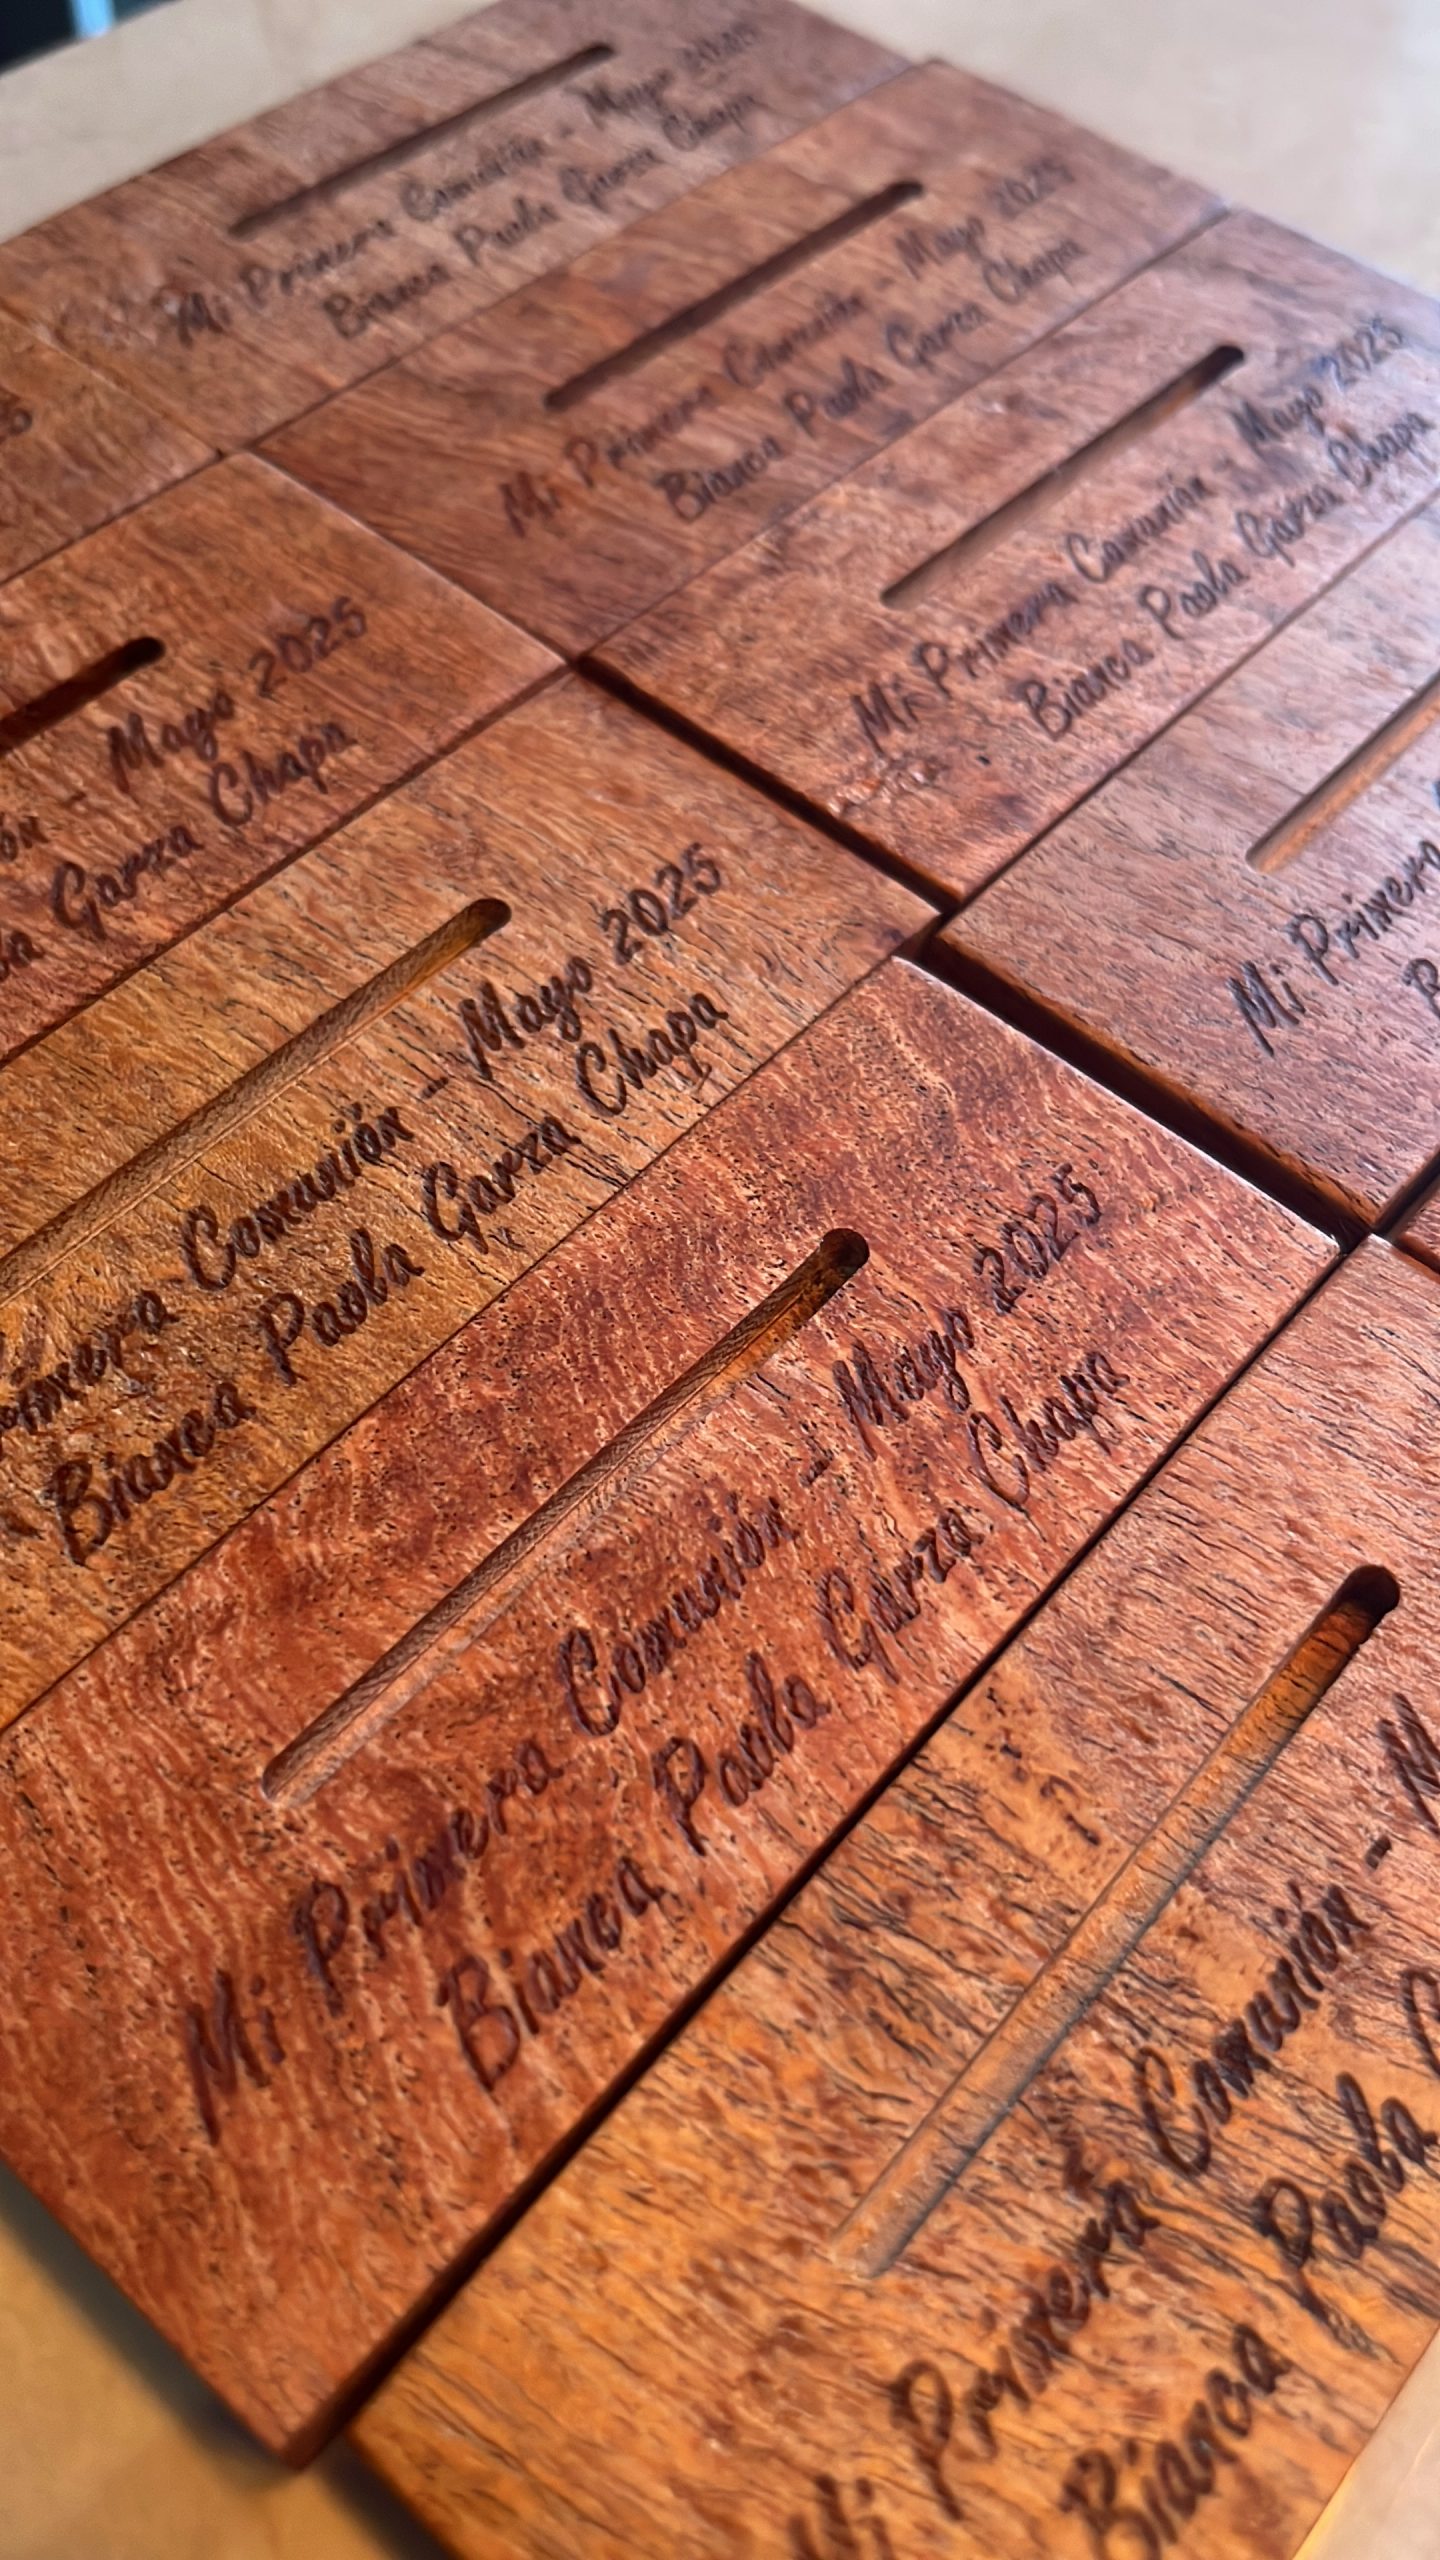 Mi Primera Comunión - Mayo 2025
Bianca Paola Garza Chapa
Mi Primera Comunión - Mayo 2025
Bianca Paola Garza Chapa
Mi Primera Comunión - Mayo 2025
Bianca Paola Garza Chapa
Mi Primera
- Mayo 2025
Garza Chapa
Primera Comunión - Mayo 2025
Bianca Paola Garza Chapa
Mi Primera Comunión - Mayo 2025
Bianca Paola Garza Chapa
Mi Primera Comunión -
Bianca Paola